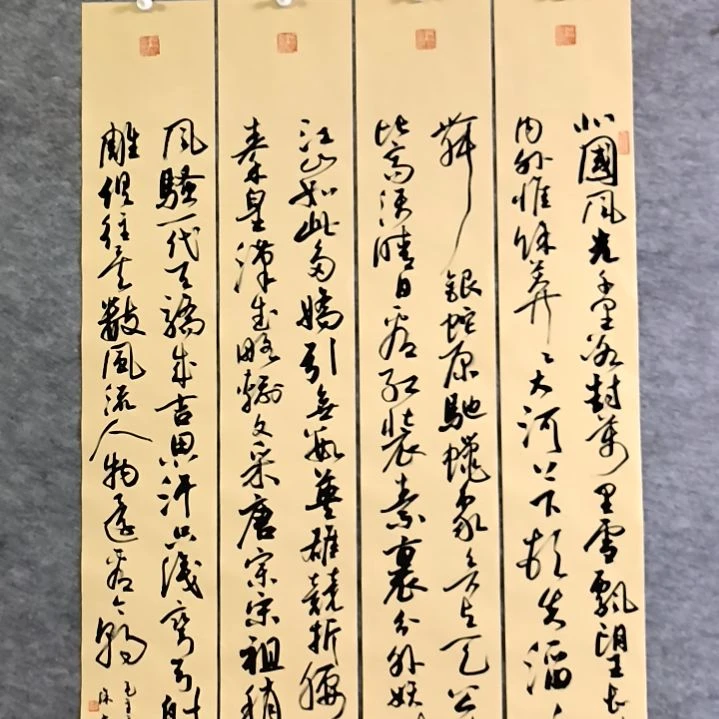 北國风光千里冰封萬里雪飄望长
内外惟余莽々大河上下頓失滔
舞銀蛇原馳蠟象欲与天公
比高须晴日看红装素裹分外妖
江山如此多嬌引無數英雄競折腰
秦皇漢武略輸文采唐宗宋祖稍
风騷一代天驕成吉思汗只識彎弓射
雕俱往矣數風流人物還看今朝
毛主